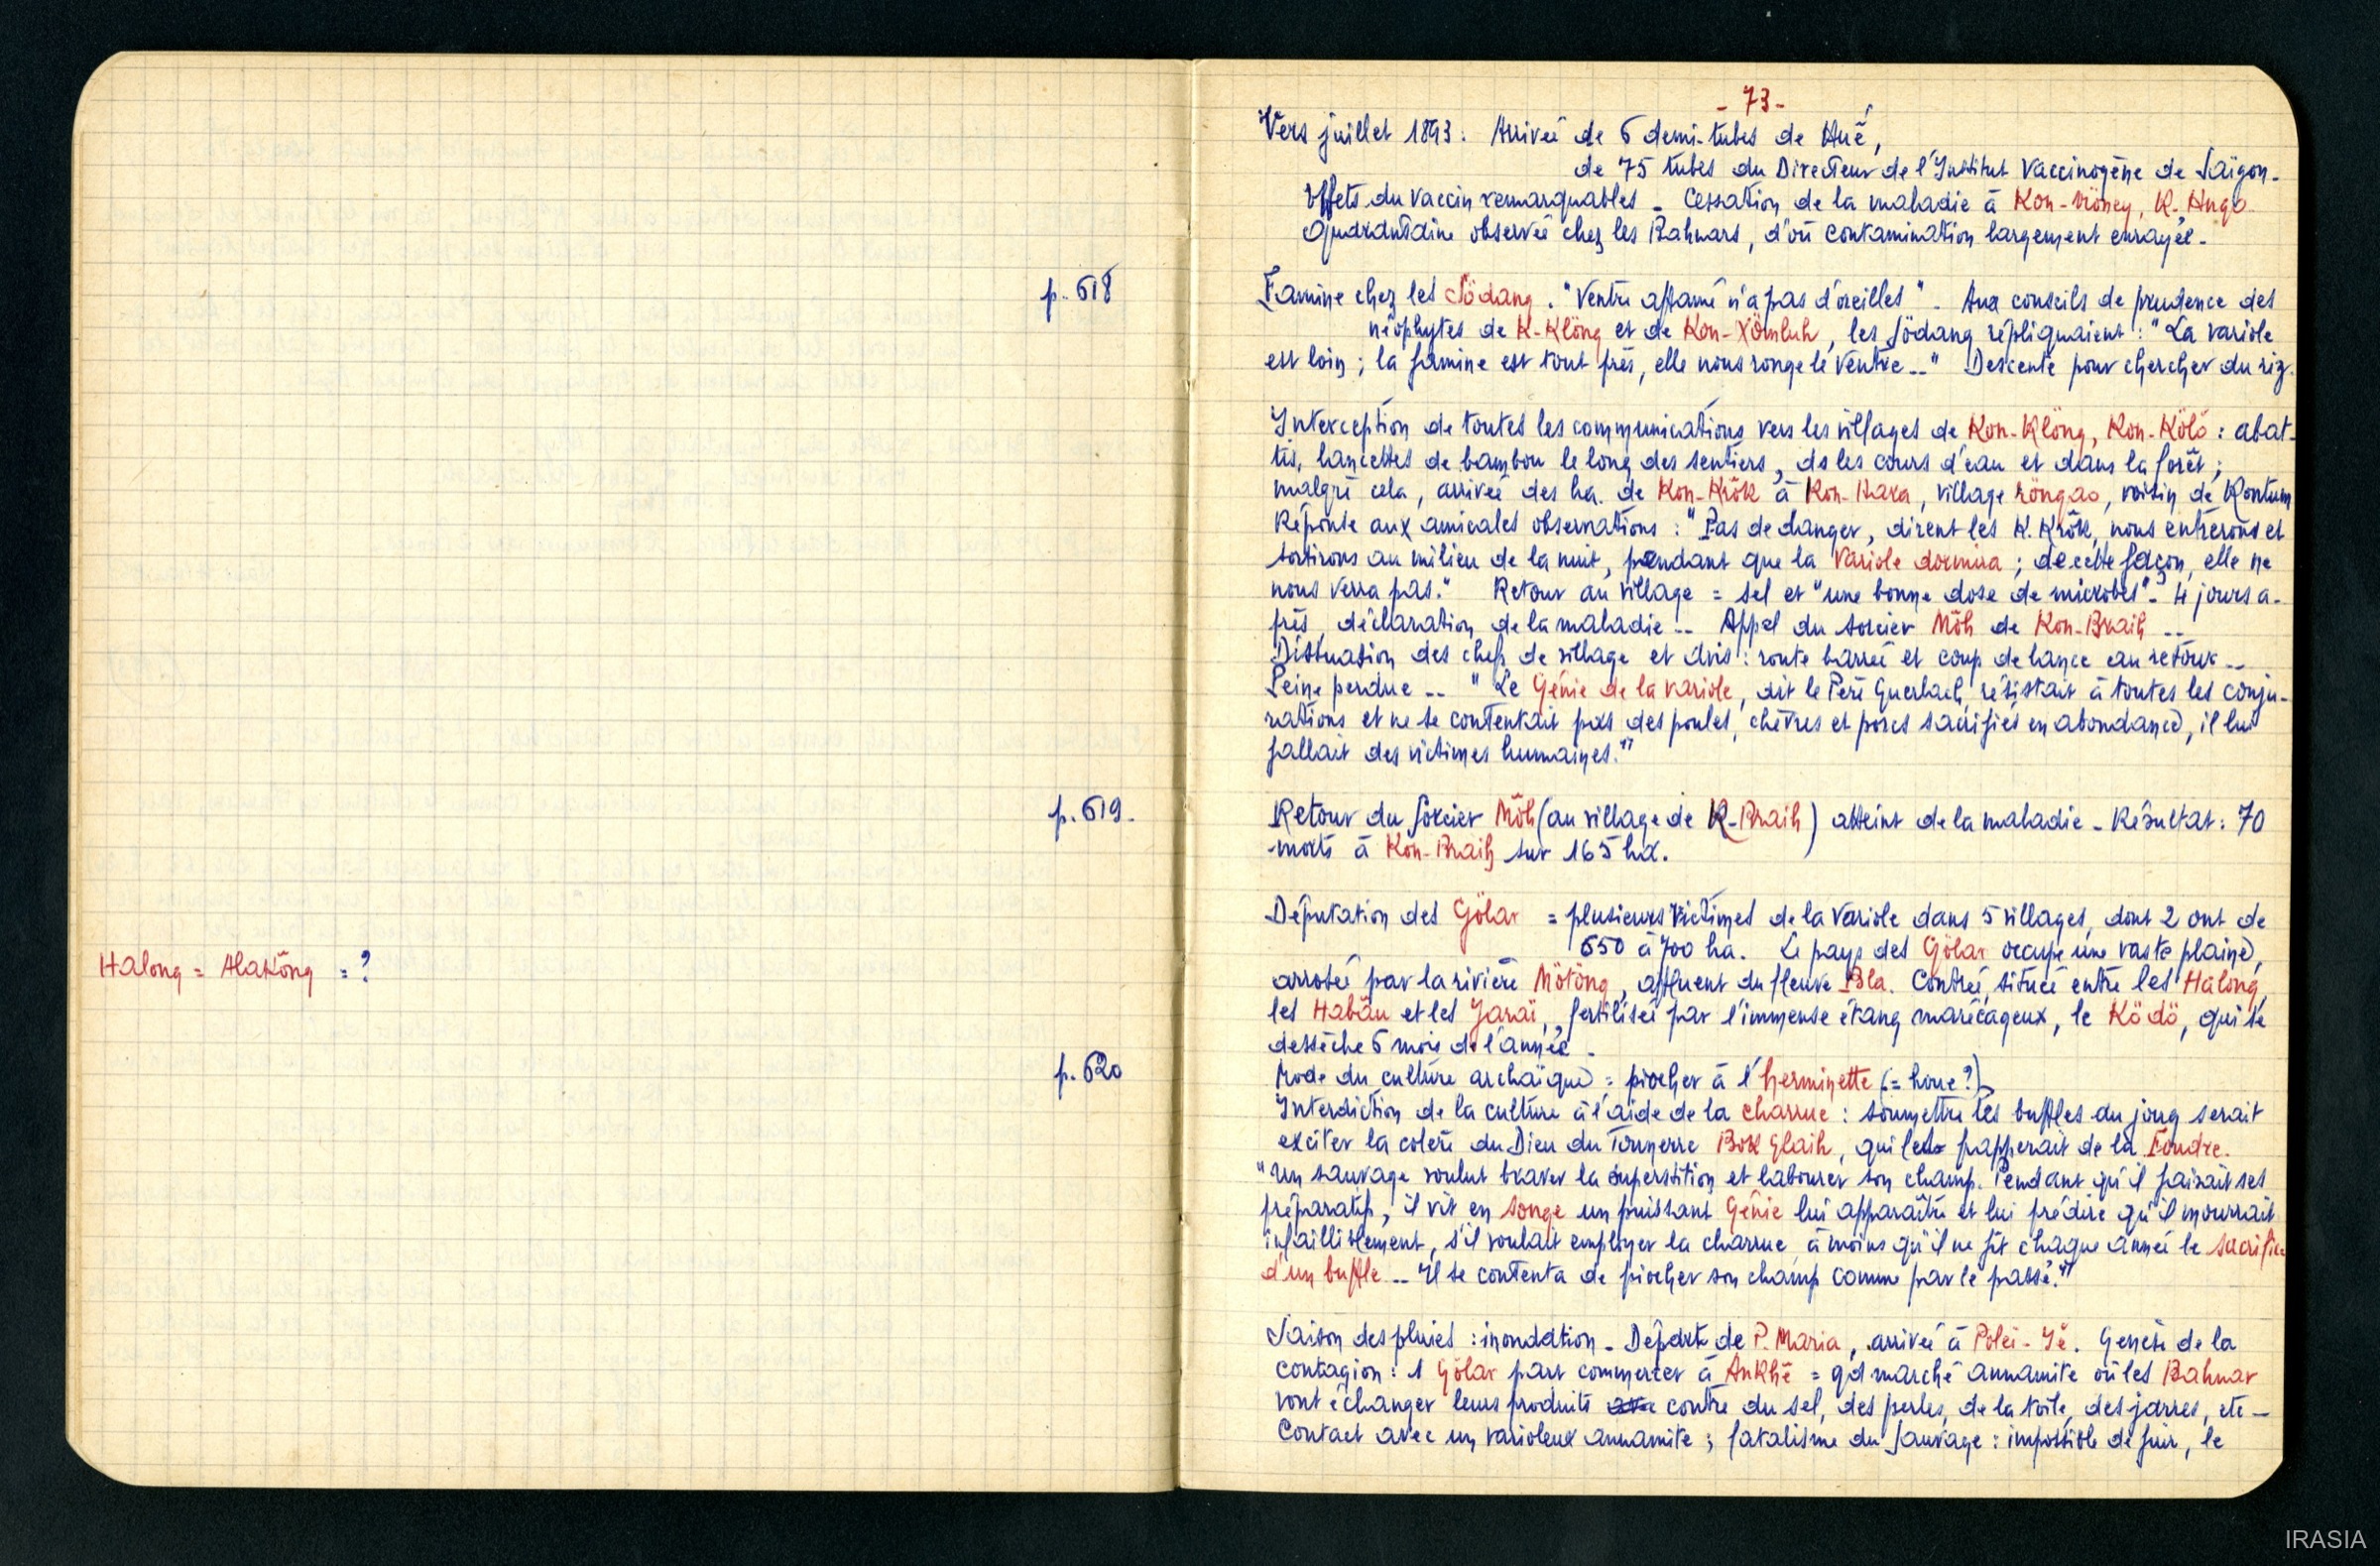 - 73 -
Vers juillet 1893 : Arrivée de 6 demi-tubes de Hué,
de 75 tubes du Directeur de l'Institut Vaccinogène de Saïgon.
Effets du vaccin remarquables - Cessation de la maladie à Kon-
Quarantaine observée chez les Bahnars, d'où contamination largement enrayée.
p. 618
Famine chez les Södang. "Ventre affamé n'a pas d'oreilles". Aux conseils de prudence des
néophytes de K-Klöng et de Kon-Xömluh, les Södang répliquaient : "La variole
est loin ; la famine est tout près, elle nous ronge le ventre --" Descente pour chercher du riz.
Interception de toutes les communications vers les villages de Kon-Klöng, Kon-Kölö : abat-
tis, lancettes de bambou le long des sentiers, ds les cours d'eau et dans la forêt ;
malgré cela, arrivée des ha. de Kon-Krôk à Kon-Hara, village röngao, voisin de Kontum
Réponse aux amicales observations : "Pas de danger, dirent les K. Krôk, nous entrerons et
sortirons au milieu de la nuit, pendant que la Variole dormira ; de cette façon, elle ne
nous verra pas." Retour au village = sel et "une bonne dose de microbes". 4 jours a-
près, déclaration de la maladie -- Appel du sorcier Möh de Kon-Braih --
Dissuasion des chefs de village et avis : route barrée et coup de lance au retour --
Peine perdue -- "Le Génie de la variole, dit le Père Guerlach, résistait à toutes les conju-
rations et ne se contentait pas des poules, chèvres et porcs sacrifiés en abondance, il lui
fallait des victimes humaines."
p. 619.
Retour du Sorcier Möh (au village de K-Braih) atteint de la maladie - Résultat : 70
morts à Kon-Braih sur 165 ha.
Députation des Gölar = plusieurs victimes de la variole dans 5 villages, dont 2 ont de
650 à 700 ha. Le pays des Gölar occupe une vaste plaine,
Halong = Alakong = ?
arrosée par la rivière Mötöng, affluent du fleuve Bla. Contrée située entre les Halong,
les Habâu et les Jaraï, fertilisée par l'immense étang marécageux, le Ködö, qui se
dessèche 6 mois de l'année.
p. 620
Mode du culture archaïque : piocher à l'herminette (= houe ?)
Interdiction de la culture à l'aide de la charrue : soumettre les buffles au joug serait
exciter la colère du Dieu du Tonnerre Bok Glaih, qui les frapperait de la Foudre.
"Un sauvage voulut braver la superstition et labourer son champ. Pendant qu'il faisait ses
préparatifs, il vit en songe un puissant Génie lui apparaître et lui prédire qu'il mourrait
infailliblement, s'il voulait employer la charrue à moins qu'il ne fît chaque année le sacrifice
d'un buffle -- Il se contenta de piocher son champ comme par le passé."
Saison des pluies : inondation - Départ de P. Maria, arrivée à Polei-Jĕ. Genèse de la
contagion : 1 Gölar part commercer à Ankhê = gd marché annamite où les Bahnar
vont échanger leurs produits contre du sel, des perles, de la toile, des jarres, etc -
Contact avec un varioleux annamite ; fatalisme du Sauvage : impossible de fuir, le
IRASIA